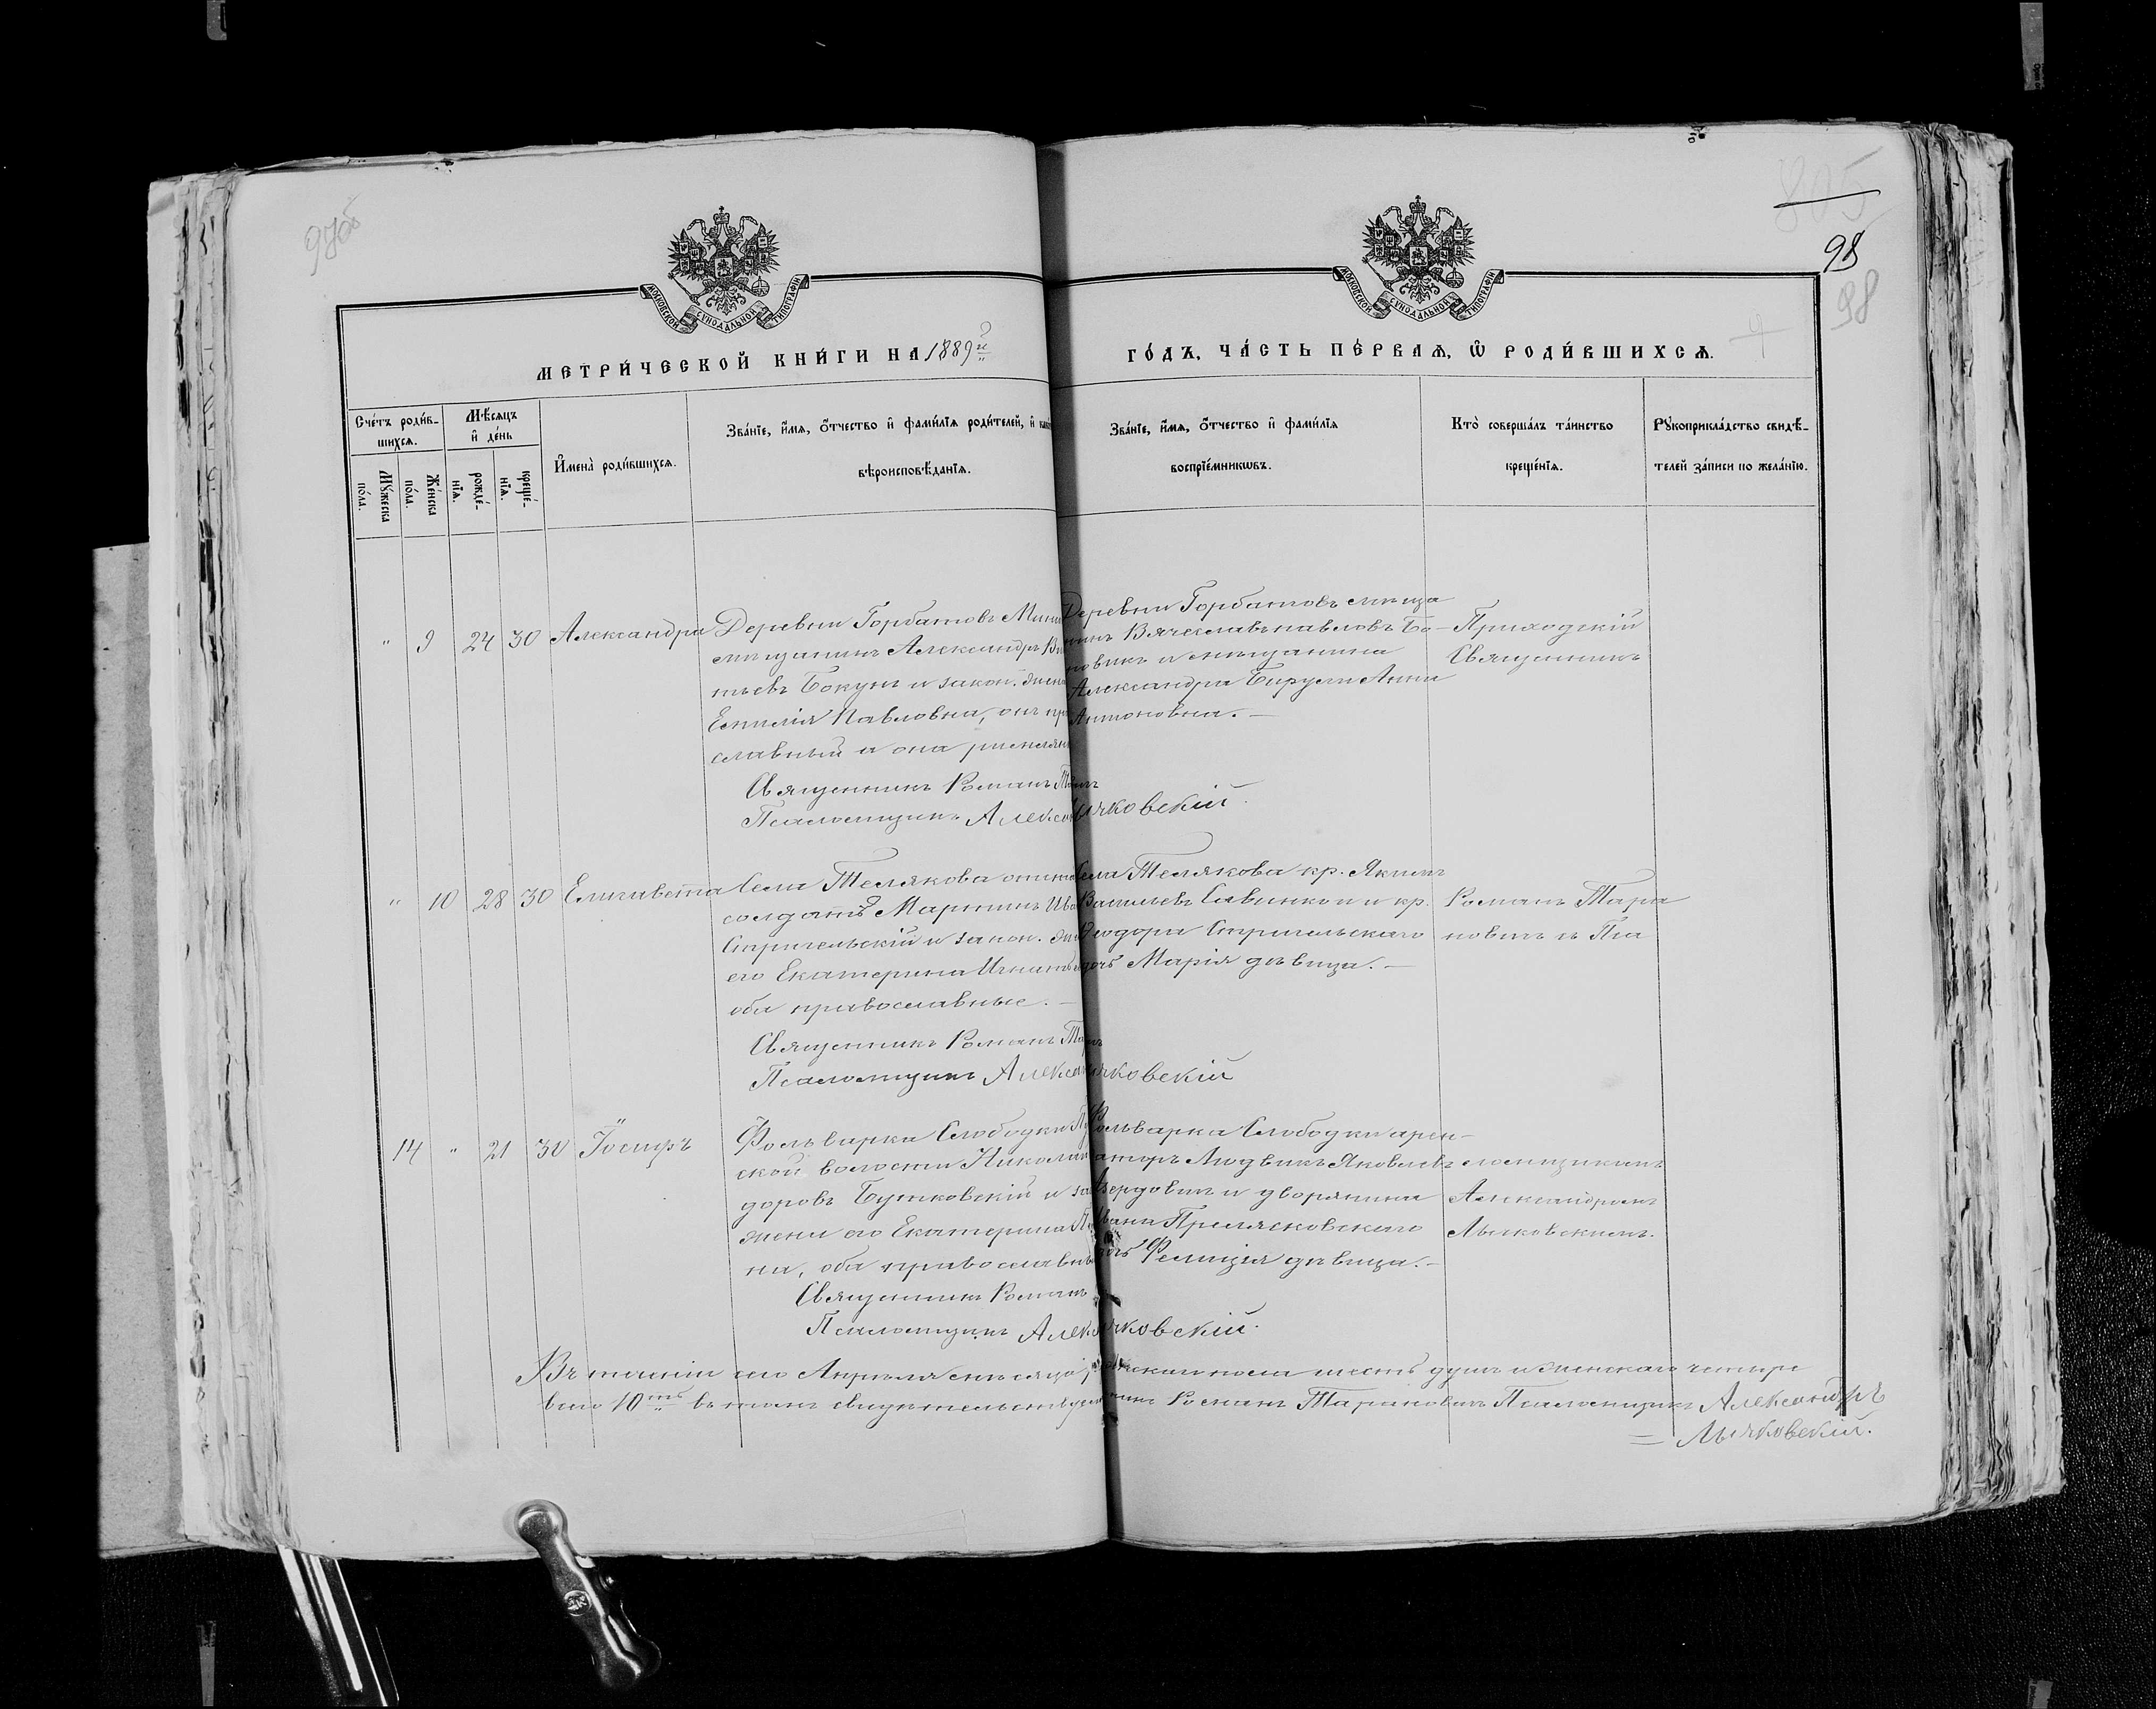 97об
805
98
98
4
МОСКОВСКОЙ СѴНОДАЛЬНОЙ ТИПОГРАФІИ
МОСКОВСКОЙ СѴНОДАЛЬНОЙ ТИПОГРАФІИ
МЕТРИ́ЧЕСКОЙ КНИ́ГИ НА 1889й
ГО́ДЪ, ЧА́СТЬ ПЕ́РВАѦ, Ѽ РОДИ́ВШИХСѦ.
Сче́тъ роди́в-
шихсѧ.
Мꙋ́жеска
по́ла.
Же́нска
по́ла.
Мѣ́сѧцъ
и҆ де́нь
рожде́-
нїѧ.
креще́-
нїѧ.
И҆мена̀ роди́вшихсѧ.
Зва́нїе, и҆́мѧ, о҆́тчество и҆ фами́лїѧ роди́телей, и҆
вѣроисповѣ́данїѧ.
Зва́нїе, и҆́мѧ, о҆́тчество и҆ фами́лїѧ
воспрїе́мникѡвъ.
Кто̀ соверша́лъ та́инство
креще́нїѧ.
Рꙋкоприкла́дство свидѣ́-
телей за́писи по жела́нїю.
" 9 24 30 Александра
Деревни Горбатовъ
мѣщанинъ Александръ
тьевъ Бокунъ и закон. жена
Емилія Павловна, онъ пра
славный а она римлян
Священникъ Романъ
Псаломщикъ Алекса
Деревни Горбатовъ мѣща
нинъ Вячеславъ Павловъ Бо-
новикъ и мѣщанина
Александра Бирули Анна
Антоновна. —
чковскій.
Приходскій
Священникъ
" 10 28 30 Елизавета
Села Телякова
солдатъ Мартинъ Ива
Стригельскій и закон. же
его Екатерина Игнать
оба православные. —
Священникъ Романъ
Псаломщикъ Алекса
Села Телякова кр. Якимъ
Васильевъ Савинкои и кр.
Ѳеодора Стригельскаго
дочь Марія дѣвица. —
чковскій
Романъ Тара
новичъ съ Пса
14 " 21 30 Іосифъ
Фольварка Слободки
ской волости Никола
доровъ Бутковскій и за
жена его Екатерина
на, оба православн
Священникъ Романъ
Псаломщикъ Алек
Фольварка Слободки арен-
даторъ Людвикъ Яковлевъ
и дворянина
Ивана Прилясковскаго
дочь Фелиція дѣвица. —
чковскій.
ломщикомъ
Александромъ
Мычковскимъ.
Въ теченіи сего Апрѣля мѣсяца
жескаго пола шесть душъ и женскаго четыре
всего 10ть въ томъ свидѣтельствуемъ
никъ Романъ Тарановичъ Псаломщикъ Александръ
= Мычковскій.